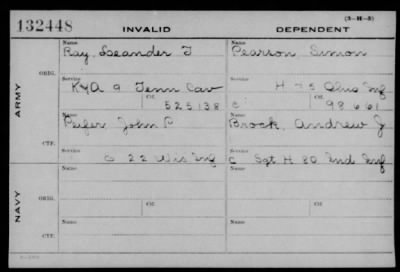 132448 INVALID DEPENDENT (3-H-5)
Name Name
Ray, Leander T Pearson, Simon
ORIG. Service Service
K+A 9 Tenn Cav H 75 Ohio Inf
Ctf. Ctf.
525138 C 98661
ARMY
Name Name
Peifer, John P Brock, Andrew J
CTF. Service Service
G 22 Wis Inf C Sgt H 80 Ind Inf
Name Name
ORIG. Service Ctf. Service Ctf.
NAVY
Name Name
CTF.